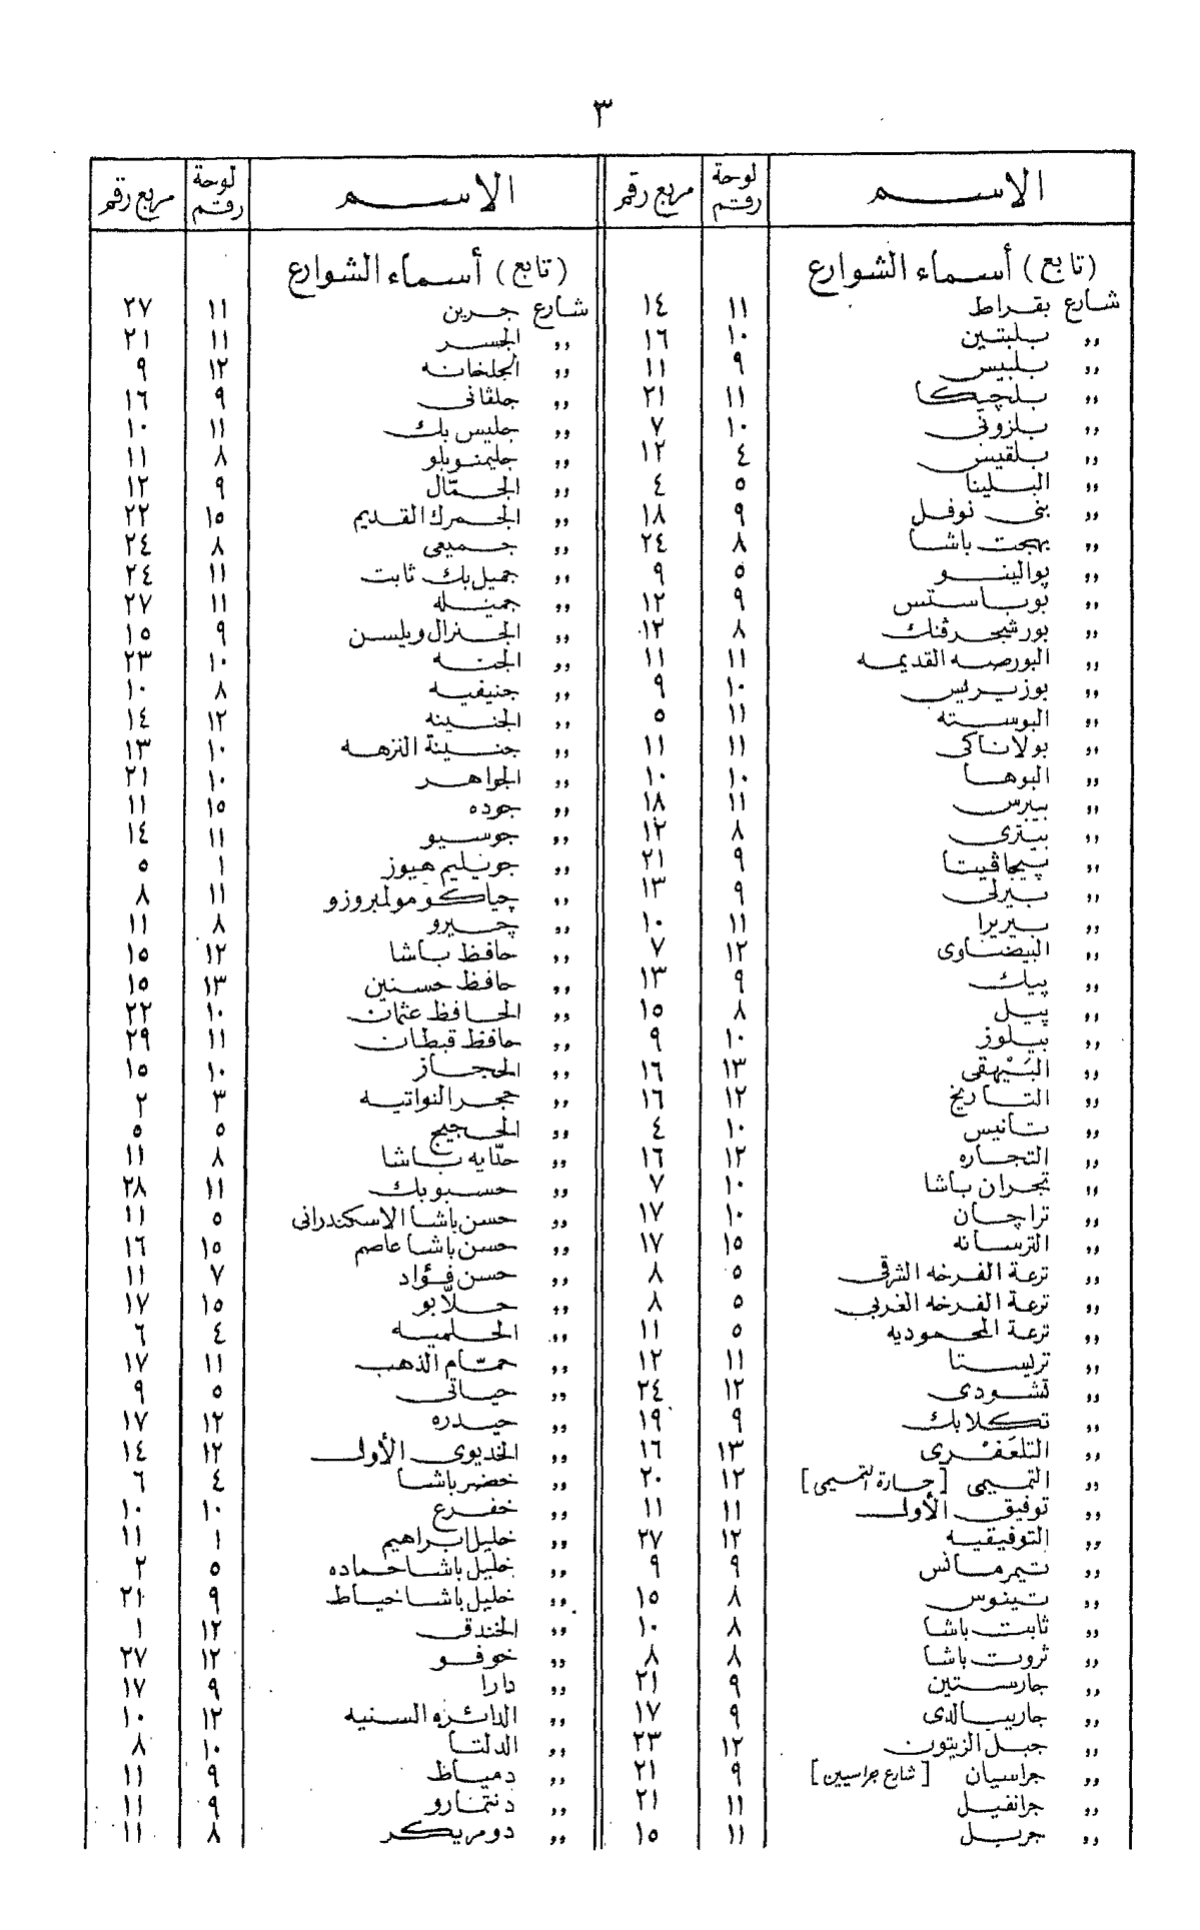 ٣
الاسم لوحة رقم مربع رقم
(تابع) أسماء الشوارع
شارع بقراط ١١ ١٤
،، بلبتين ١٠ ١٦
،، بلبيس ٩ ١١
،، بلچيكا ١١ ٢١
،، بلزوني ١٠ ٧
،، بلقيس ٤ ١٢
،، البلينا ٥ ٤
،، بنى نوفل ٩ ١٨
،، بهجت باشا ٨ ٢٤
،، بوالينو ٥ ٩
،، بوباستس ٩ ١٢
،، بورشجرڤنك ٨ ١٢
،، البورصه القديمه ١١ ١١
،، بوزيريس ١٠ ٩
،، البوسته ١١ ٥
،، بولاناكى ١١ ١١
،، البوها ١٠ ١٠
،، بيبرس ١١ ١٨
،، بيترى ٨ ١٢
،، پيجاڤيتا ٩ ٢١
،، بيرلى ٩ ١٣
،، بيريرا ١١ ١٠
،، البيضاوى ١٢ ٧
،، پيك ٩ ١٣
،، پيل ٨ ١٥
،، بيلوز ١٠ ٩
،، البَيْهقى ١٣ ١٦
،، التاريخ ١٢ ١٦
،، تانيس ١٠ ٤
،، التجاره ١٢ ١٦
،، تجران باشا ١٠ ٧
،، تراچان ١٠ ١٧
،، الترسانه ١٥ ١٧
،، ترعة الفرخه الشرقى ٥ ٨
،، ترعة الفرخه الغربى ٥ ٨
،، ترعة المحموديه ٥ ١١
،، تريستا ١١ ١٢
،، تشودى ١٢ ٢٤
،، تكلا بك ٩ ١٩
،، التلعَفْرى ١٣ ١٦
،، التميمى [حارة التميمى] ١٢ ٢٠
،، توفيق الأول ١١ ١١
،، التوفيقيه ١٢ ٢٧
،، تيرمانس ٩ ٩
،، تينوس ٨ ١٥
،، ثابت باشا ٨ ١٠
،، ثروت باشا ٨ ٨
،، جارستين ٩ ٢١
،، جاريبالدى ٩ ١٧
،، جبل الزيتون ١٢ ٢٣
،، جراسيان [شارع جراسيين] ٩ ٢١
،، جرانفيل ١١ ٢١
،، جريل ١١ ١٥
الاسم لوحة رقم مربع رقم
(تابع) أسماء الشوارع
شارع جرين ١١ ٢٧
،، الجسر ١١ ٢١
،، الجلخانه ١٢ ٩
،، جلفانى ٩ ١٦
،، جليس بك ١١ ١٠
،، جليمنوبلو ٨ ١١
،، الجمّال ٩ ١٢
،، الجمرك القديم ١٥ ٢٢
،، جميعى ٨ ٢٤
،، جميل بك ثابت ١١ ٢٤
،، جميله ١١ ٢٧
،، الجنرال ويلسن ٩ ١٥
،، الجنه ١٠ ٢٣
،، جنيفيه ٨ ١٠
،، الجنينه ١٢ ١٤
،، جنينة النزهه ١٠ ١٣
،، الجواهر ١٠ ٢١
،، جوده ١٥ ١١
،، جوسيو ١١ ١٤
،، جونيليم هيوز ١ ٥
،، چياكومولمبروزو ١١ ٨
،، چيرو ٨ ١١
،، حافظ باشا ١٢ ١٥
،، حافظ حسنين ١٣ ١٥
،، الحافظ عثمان ١٠ ٢٢
،، حافظ قبطان ١١ ٢٩
،، الحجاز ١٠ ١٥
،، حجر النواتيه ٣ ٢
،، الحجيج ٥ ٥
،، حتّايه باشا ٨ ١١
،، حسبو بك ١١ ٢٨
،، حسن باشا الاسكندرانى ٥ ١١
،، حسن باشا عاصم ١٥ ١٦
،، حسن فؤاد ٧ ١١
،، حلّابو ١٥ ١٧
،، الحلميه ٤ ٦
،، حمّام الذهب ١١ ١٧
،، حياتى ٥ ٩
،، حيدره ١٢ ١٧
،، الخديوى الأول ١٢ ١٤
،، خضر باشا ٤ ٦
،، خفرع ١٠ ١٠
،، خليل ابراهيم ١ ١١
،، خليل باشا حماده ٥ ٢
،، خليل باشا خياط ٩ ٢١
،، الخندق ١٢ ١
،، خوفو ١٢ ٢٧
،، دارا ٩ ١٧
،، الدائره السنيه ١٢ ١٠
،، الدلتا ١٠ ٨
،، دمياط ٩ ١١
،، دنتمارو ٩ ١١
،، دومريكر ٨ ١١